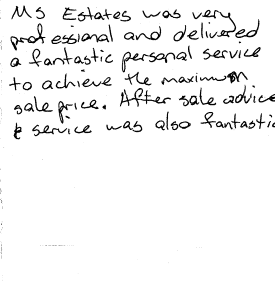 MS Estates was very
professional and delivered
a fantastic personal service
to achieve the maximum
sale price. After sale advice
& service was also fantastic